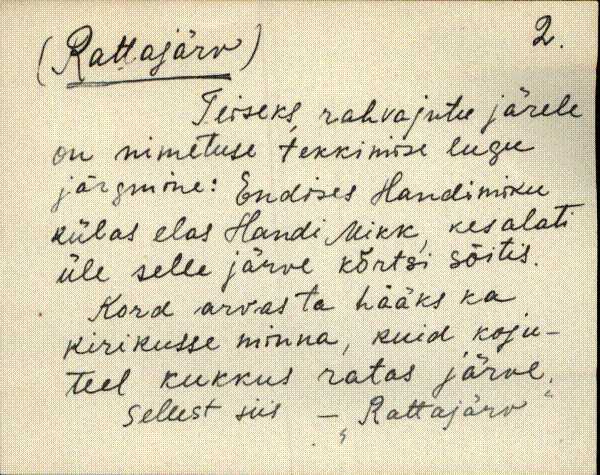 (Rattajärv) 2.
Teiseks, rahvajutu järele
on nimetuse tekkimise lugu
järgmine: Endises Handimiku
külas elas Handi Mikk, kes alati
üle selle järve kõrtsi sõitis.
Kord arvas ta hääks ka
kirikusse minna, kuid koju-
teel kukkus ratas järve.
Sellest siis – „Rattajärv"